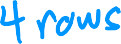 4 rows